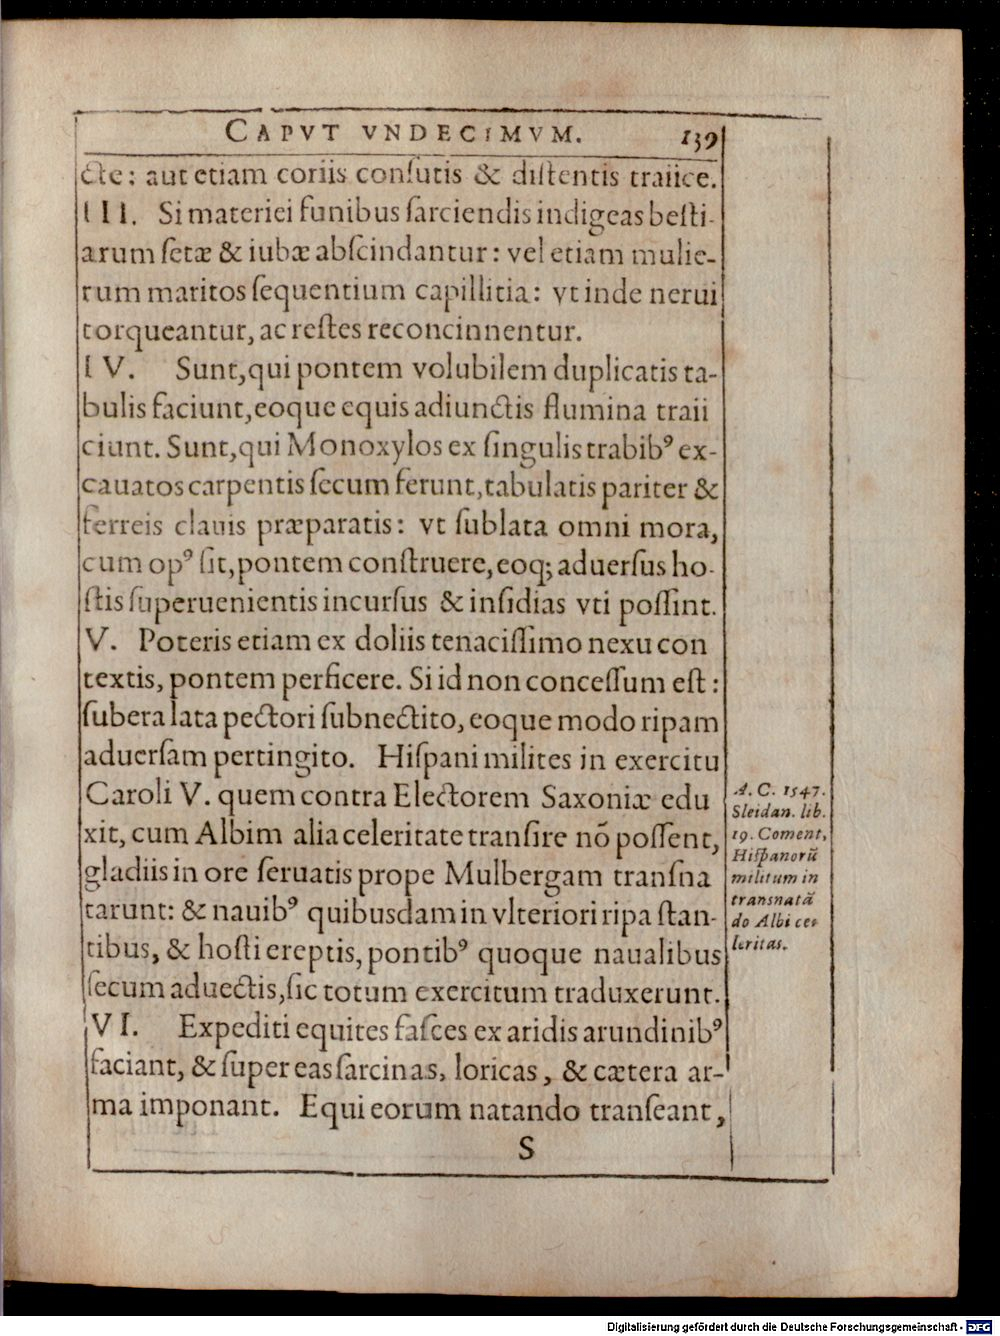 CAPVT VNDECIMVM. 139
cte: aut etiam coriis conſutis & diſtentis traiice.
III. Si materiei funibus ſarciendis indigeas beſti-
arum ſetæ & iubæ abſcindantur: vel etiam mulie-
rum maritos ſequentium capillitia: vt inde nerui
torqueantur, ac reſtes reconcinnentur.
IV. Sunt, qui pontem volubilem duplicatis ta-
bulis faciunt, eoque equis adiunctis flumina traii
ciunt. Sunt, qui Monoxylos ex ſingulis trabibꝰ ex-
cauatos carpentis ſecum ferunt, tabulatis pariter &
ferreis clauis præparatis: vt ſublata omni mora,
cum opꝰ ſit, pontem conſtruere, eoq; aduerſus ho-
ſtis ſuperuenientis incurſus & inſidias vti poſſint.
V. Poteris etiam ex doliis tenaciſſimo nexu con
textis, pontem perficere. Si id non conceſſum eſt:
ſubera lata pectori ſubnectito, eoque modo ripam
aduerſam pertingito. Hiſpani milites in exercitu
Caroli V. quem contra Electorem Saxoniæ edu
xit, cum Albim alia celeritate tranſire nō poſſent,
gladiis in ore ſeruatis prope Mulbergam tranſna
tarunt: & nauibꝰ quibusdam in vlteriori ripa ſtan-
tibus, & hoſti ereptis, pontibꝰ quoque naualibus
ſecum aduectis, ſic totum exercitum traduxerunt.
VI. Expediti equites faſces ex aridis arundinibꝰ
faciant, & ſuper eas ſarcinas, loricas, & cætera ar-
ma imponant. Equi eorum natando tranſeant,
S
A. C. 1547.
Sleidan. lib.
19. Coment,
Hiſpanorū
militum in
transnatā
do Albi ce-
leritas.
Digitalisierung gefördert durch die Deutsche Forschungsgemeinschaft - DFG